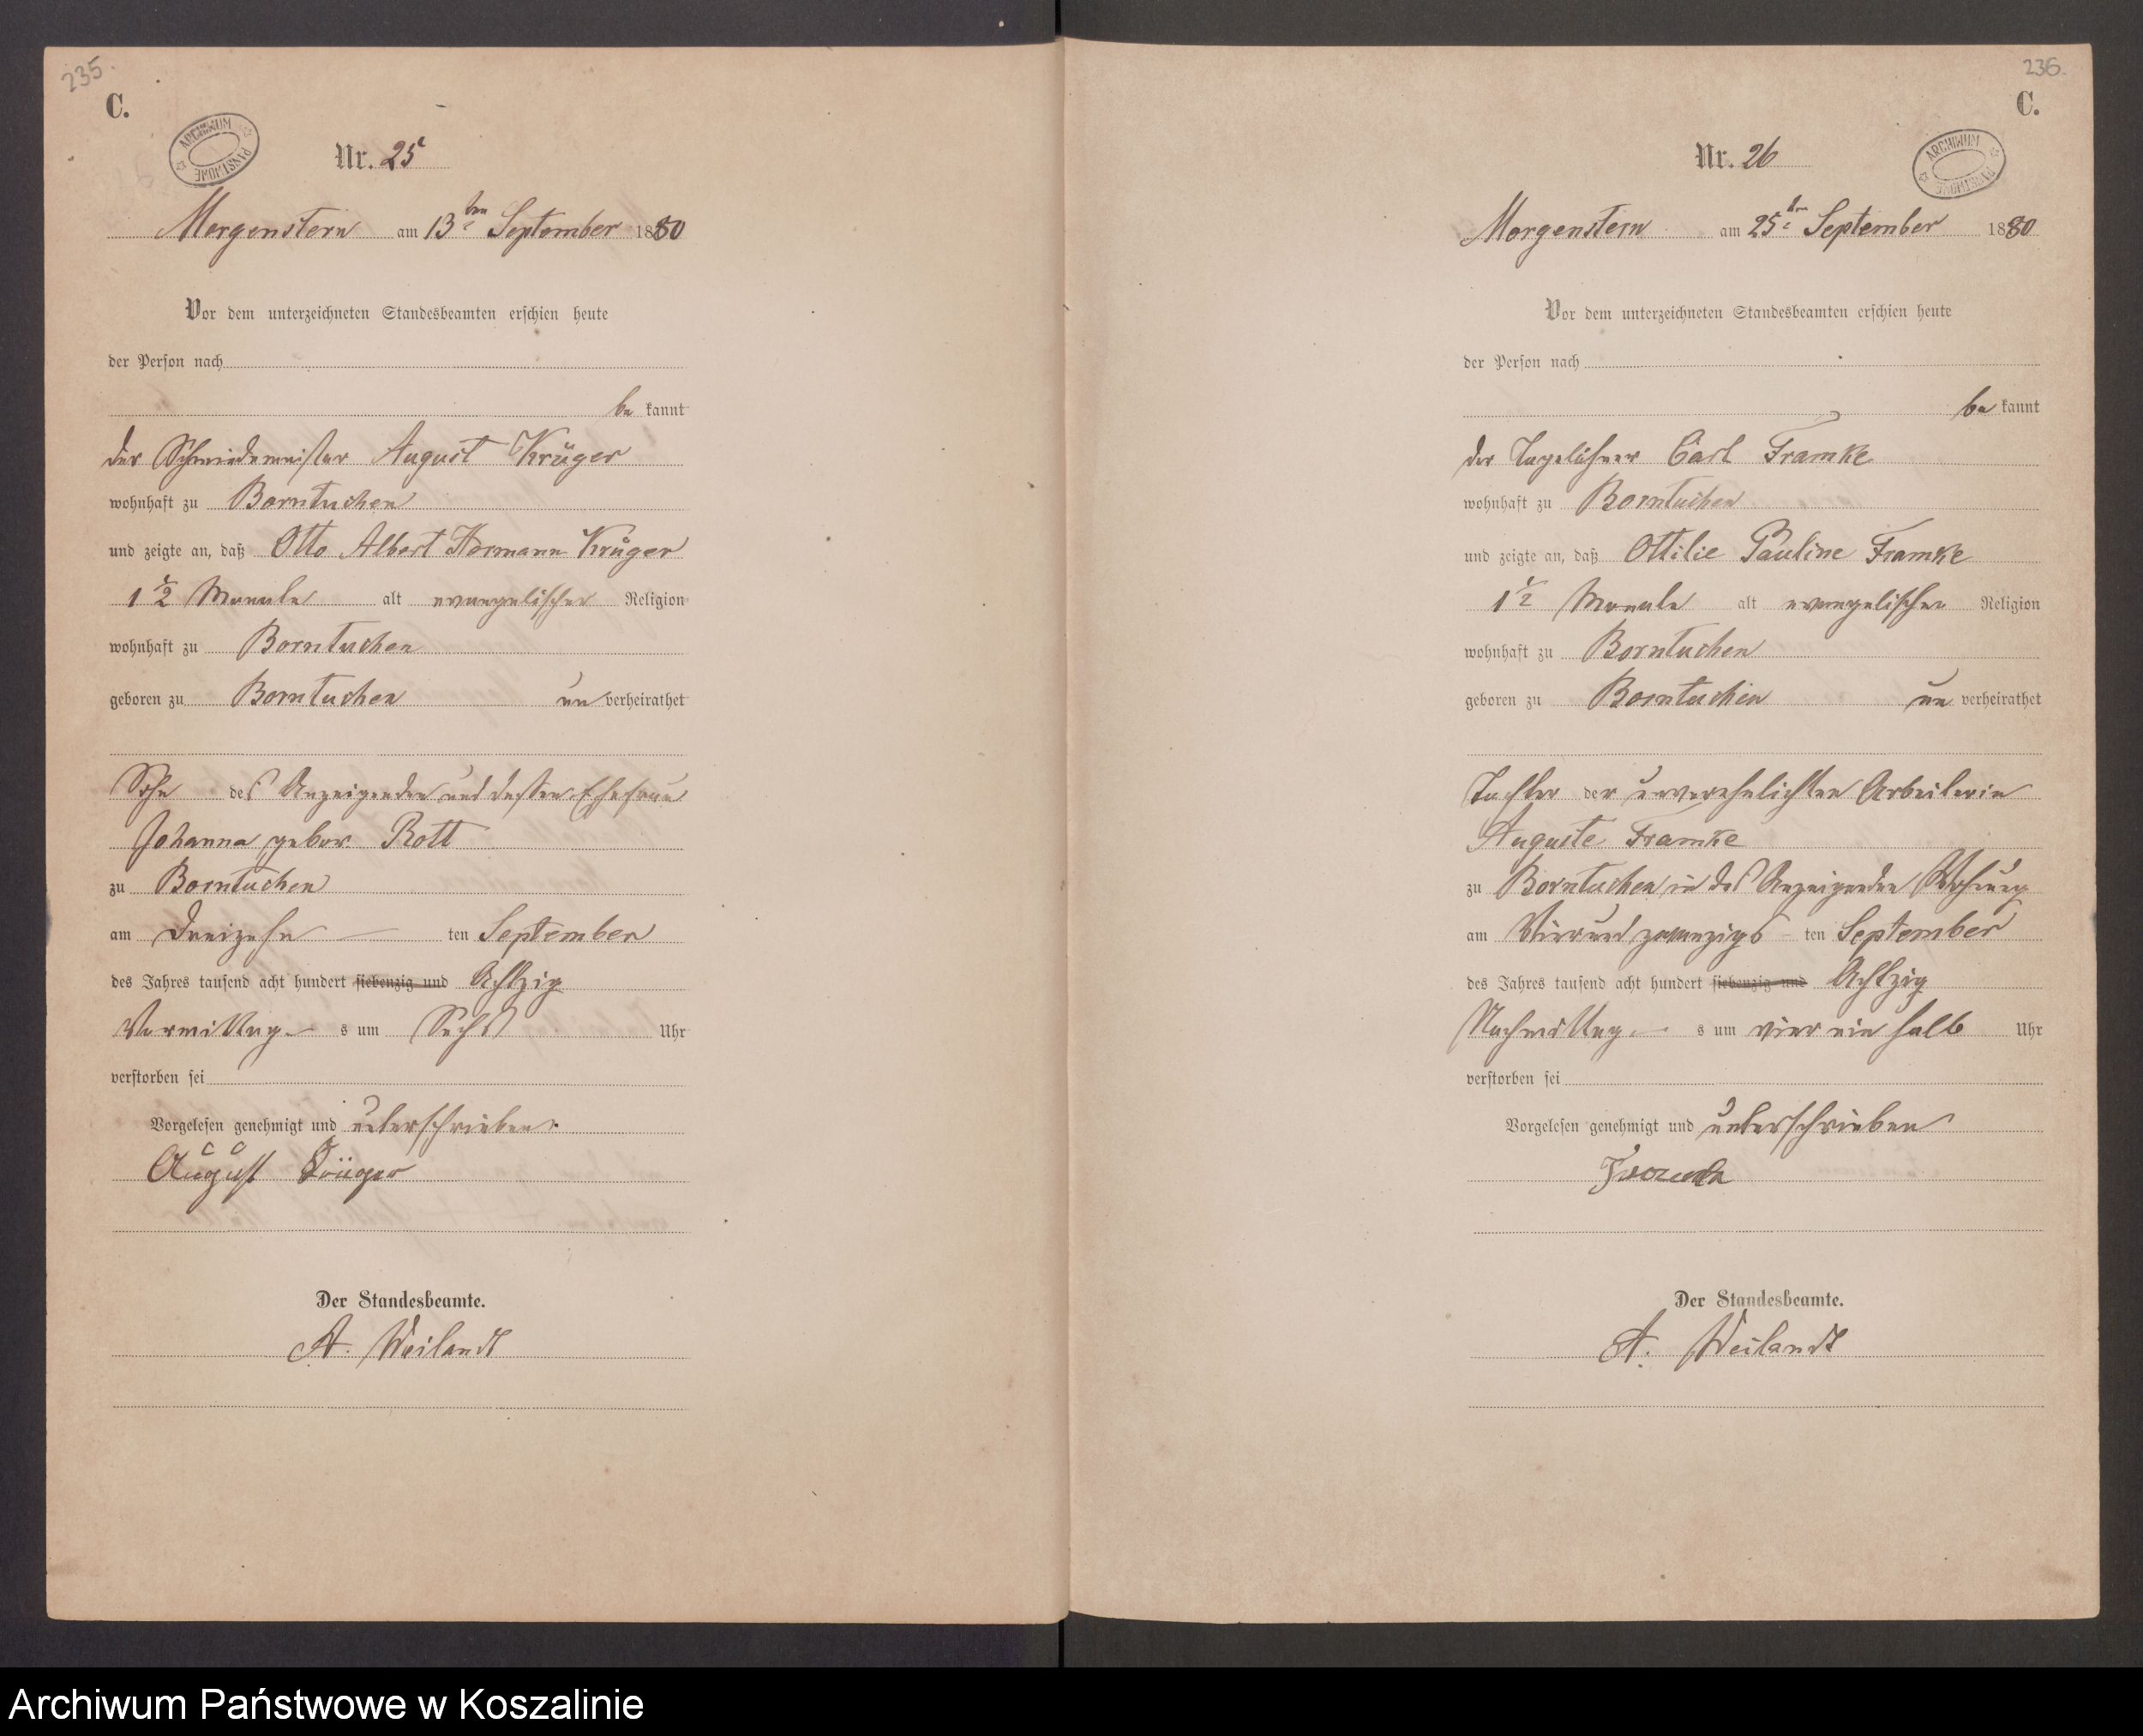 235.
C.
ARCHIWUM PAŃSTWOWE
Nr. 25
Morgenstern am 13ten September 1880
Vor dem unterzeichneten Standesbeamten erschien heute
der Person nach
be kannt
der Schmiedemeister August Krüger
wohnhaft zu Borntuchen
und zeigte an, daß Otto Albert Hermann Krüger
1 1/2 Monate alt evangelischer Religion
wohnhaft zu Borntuchen
geboren zu Borntuchen un verheirathet
Sohn des Anzeigenden und dessen Ehefrau
Johanna gebor. Rott
zu Borntuchen
am Dreizehn ten September
des Jahres tausend acht hundert siebenzig und Achtzig
Vormittag s um Sechs Uhr
verstorben sei
Vorgelesen genehmigt und unterschrieben
August Krüger
Der Standesbeamte.
A. Weilandt
236.
C.
ARCHIWUM PAŃSTWOWE
Nr. 26
Morgenstern am 25ten September 1880
Vor dem unterzeichneten Standesbeamten erschien heute
der Person nach
be kannt
der Tagelöhner Carl Framke
wohnhaft zu Borntuchen
und zeigte an, daß Ottilie Pauline Framke
1 1/2 Monate alt evangelischer Religion
wohnhaft zu Borntuchen
geboren zu Borntuchen un verheirathet
Tochter der unverehelichten Arbeiterin
Auguste Framke
zu Borntuchen in des Anzeigenden Wohnung
am Vierundzwanzigs ten September
des Jahres tausend acht hundert siebenzig und Achtzig
Nachmittag s um vier ein halb Uhr
verstorben sei
Vorgelesen genehmigt und unterschrieben
Der Standesbeamte.
A. Weilandt
Archiwum Państwowe w Koszalinie